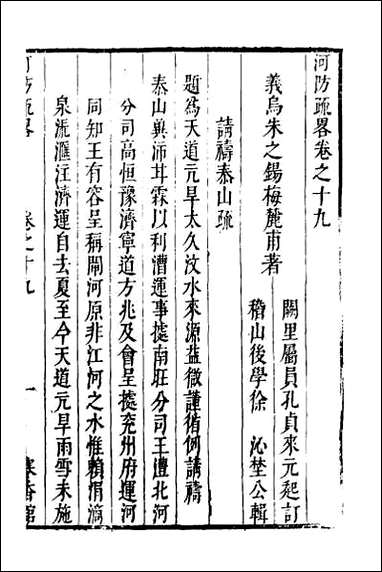 河防疏畧卷之十九
義烏朱之錫梅麓甫著
闕里屬員孔貞來元起訂
稽山後學徐　沁埜公輯
請禱泰山疏
題爲天道亢旱太久汶水來源益微謹循例請禱
泰山興沛甘霖以利漕運事據南旺分司王澧北河
分司高恒豫濟寧道方兆及會呈據兖州府運河
同知王有容呈稱閘河原非江河之水惟賴涓滴
泉流滙注濟運自去夏至今天道亢旱雨雪未施
河防疏畧
卷之十九
一
寒香館